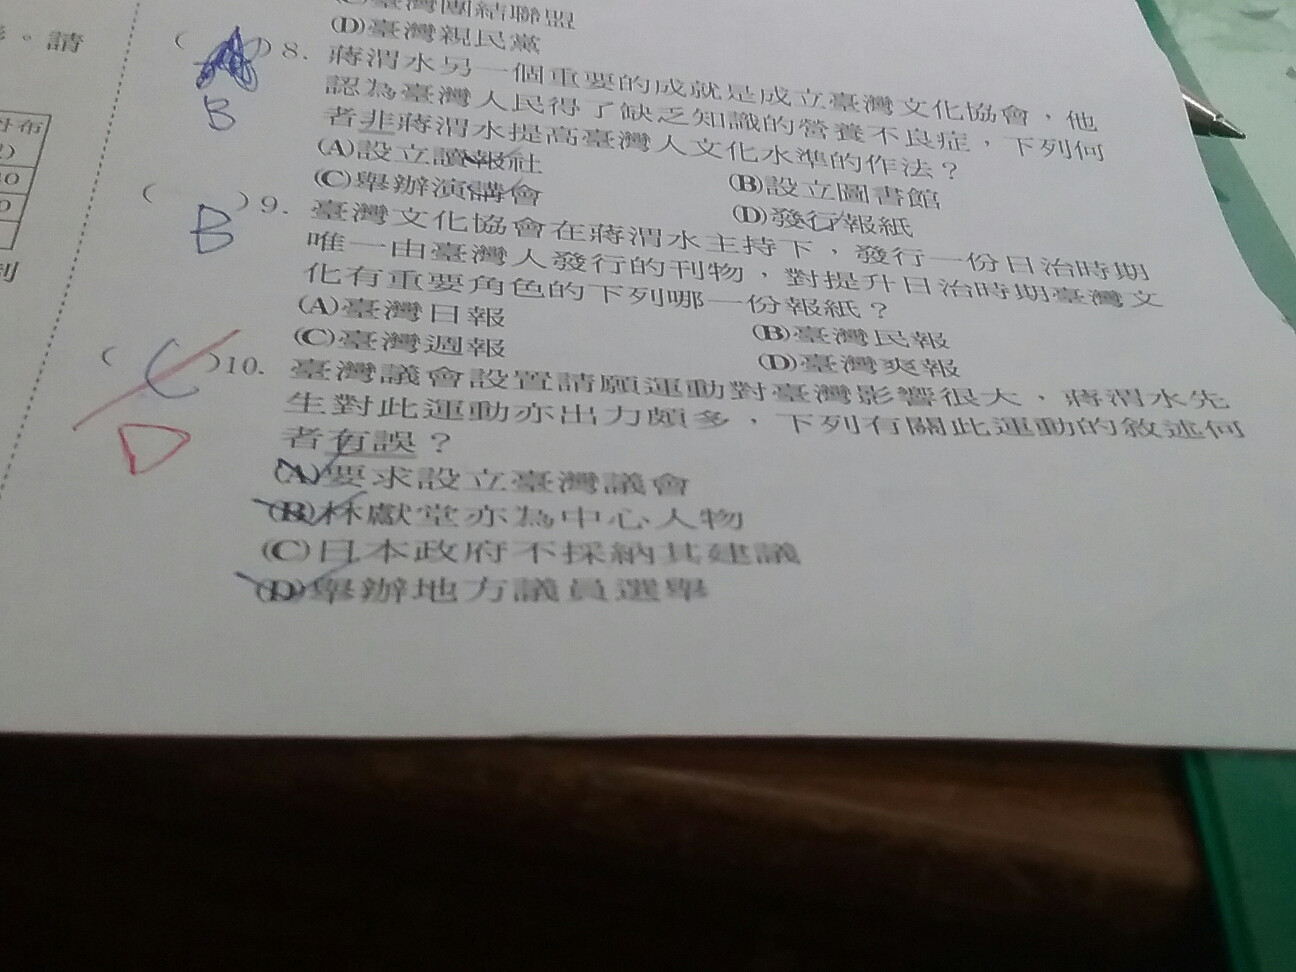 。請
(C)臺灣團結聯盟
(D)臺灣親民黨
( )8. 蔣渭水另一個重要的成就是成立臺灣文化協會，他
B
認為臺灣人民得了缺乏知識的營養不良症，下列何
者非蔣渭水提高臺灣人文化水準的作法？
(A)設立讀報社
(B)設立圖書館
(C)舉辦演講會
(D)發行報紙
( B )9. 臺灣文化協會在蔣渭水主持下，發行一份日治時期
唯一由臺灣人發行的刊物，對提升日治時期臺灣文
化有重要角色的下列哪一份報紙？
(A)臺灣日報
(B)臺灣民報
(C)臺灣週報
(D)臺灣爽報
( C )10. 臺灣議會設置請願運動對臺灣影響很大，蔣渭水先
D
生對此運動亦出力頗多，下列有關此運動的敘述何
者有誤？
(A)要求設立臺灣議會
(B)林獻堂亦為中心人物
(C)日本政府不採納其建議
(D)舉辦地方議員選舉